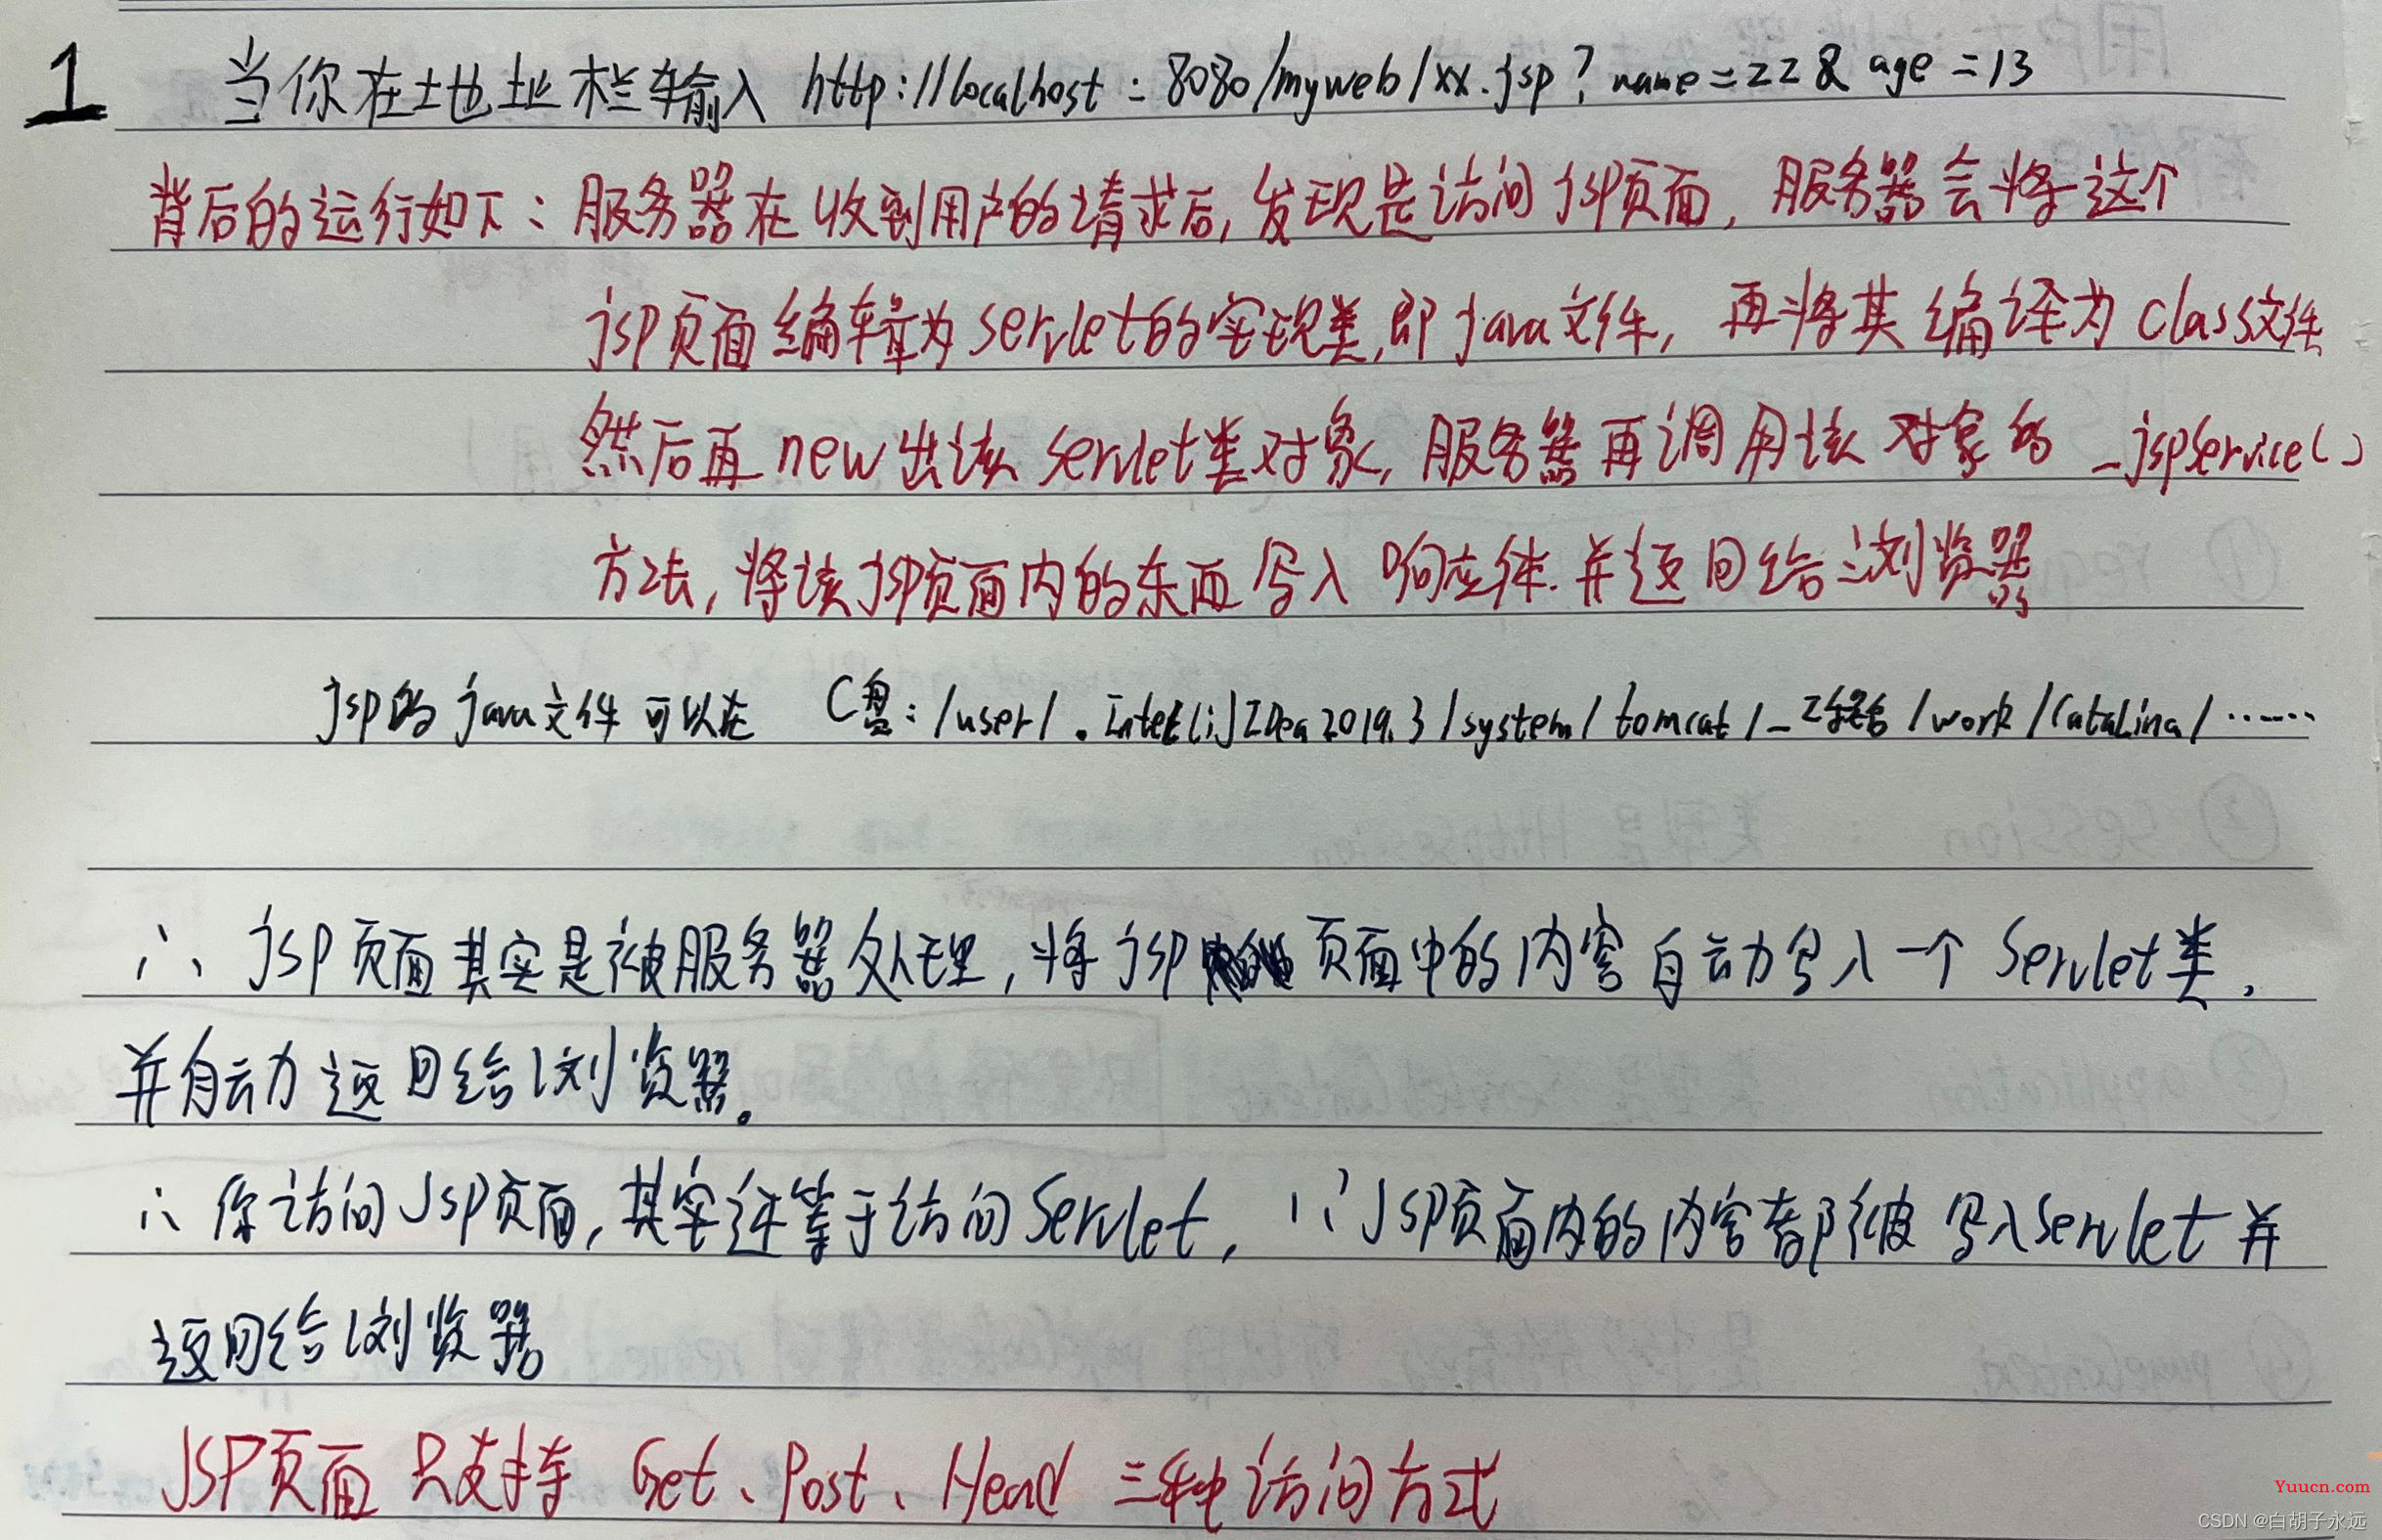 1 当你在地址栏输入 http://localhost:8080/myweb/xx.jsp?name=zz&age=13
背后的运行如下:服务器在收到用户的请求后,发现是访问jsp页面,服务器会将这个
jsp页面编辑为servlet的实现类,即java文件,再将其编译为class文件
然后再new出该servlet类对象,服务器再调用该对象的_jspService()
方法,将该jsp页面内的东西写入响应体.并返回给浏览器
jsp的java文件可以在 C盘:/user/.IntelliJIDea2019.3/system/tomcat/_工程名/work/Catalina/……
∴ jsp页面其实是被服务器处理,将jsp页面中的内容自动写入一个Servlet类,
并自动返回给浏览器。
∴ 你访问Jsp页面,其实还等于访问Servlet,∵Jsp页面内的内容都被写入Servlet并
返回给浏览器
JSP页面只支持 Get、Post、Head 三种访问方式
Yuucn.com
CSDN @白胡子永远